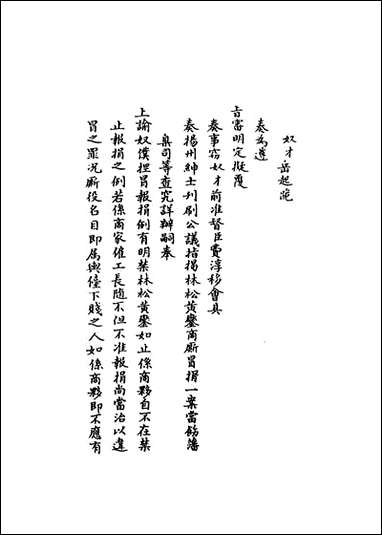 奴才岳起跪
奏為遵
旨審明定擬覆
奏事竊奴才前准督臣費淳移會具
奏揚州紳士刋刷公議指揭林松黃鏊商廝冒捐一案當飭藩
臬司等查究詳辦嗣奉
上諭奴僕捏冒報捐例有明禁林松黃鏊如止係商夥自不在禁
止報捐之例若係商家催工長隨不但不准報捐尚當治以違
冒之罪況廝役名目即属輿儓下賤之人如係商夥即不應有